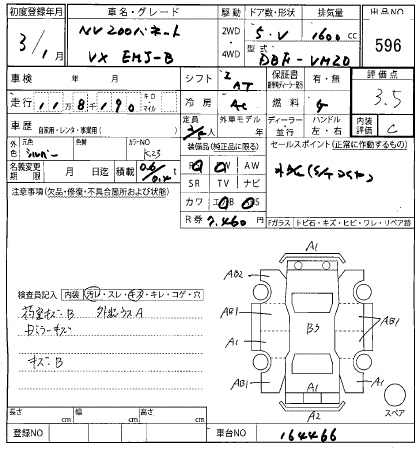 初度登録年月
車名・グレード
駆動
ドア数・形状
排気量
出品NO
3/1月
NV200バネット
VX EMJ-B
2WD
4WD
5・V
1600cc
型式
DBF-VM20
596
車検 年 月
シフト
AT
保証書
有・無
評価点
3.5
走行
11万8千190
キロ
マイル
冷房
AC
燃料
車歴
自家用・レンタ・事業用( )
定員
外車モデル年
ディーラー
並行
ハンドル
左・右
内装評価
C
外色
元色
シルバー
色替
カラーNO
K23
装備品(純正品に限る)
セールスポイント(正常に作動するもの)
名義変更期限
月 日迄
積載
0.6/0.4
PW
AW
SR TV ナビ
カワ
R券
7,460
円
注意事項(欠品・修復・不具合箇所および状態)
Fガラス
トビ石・キズ・ヒビ・ワレ・リペア跡
検査員記入
内装
汚レ・スレ・キズ・キレ・コゲ・穴
荷室キズB
外板ウスA
Dミラーキズ
キズB
A1
AB2
AB2
AB1
B3
A1
AB1
AB1
A1
A1
A2
スペア
長さ cm
幅 cm
高さ cm
登録NO
車台NO
164466